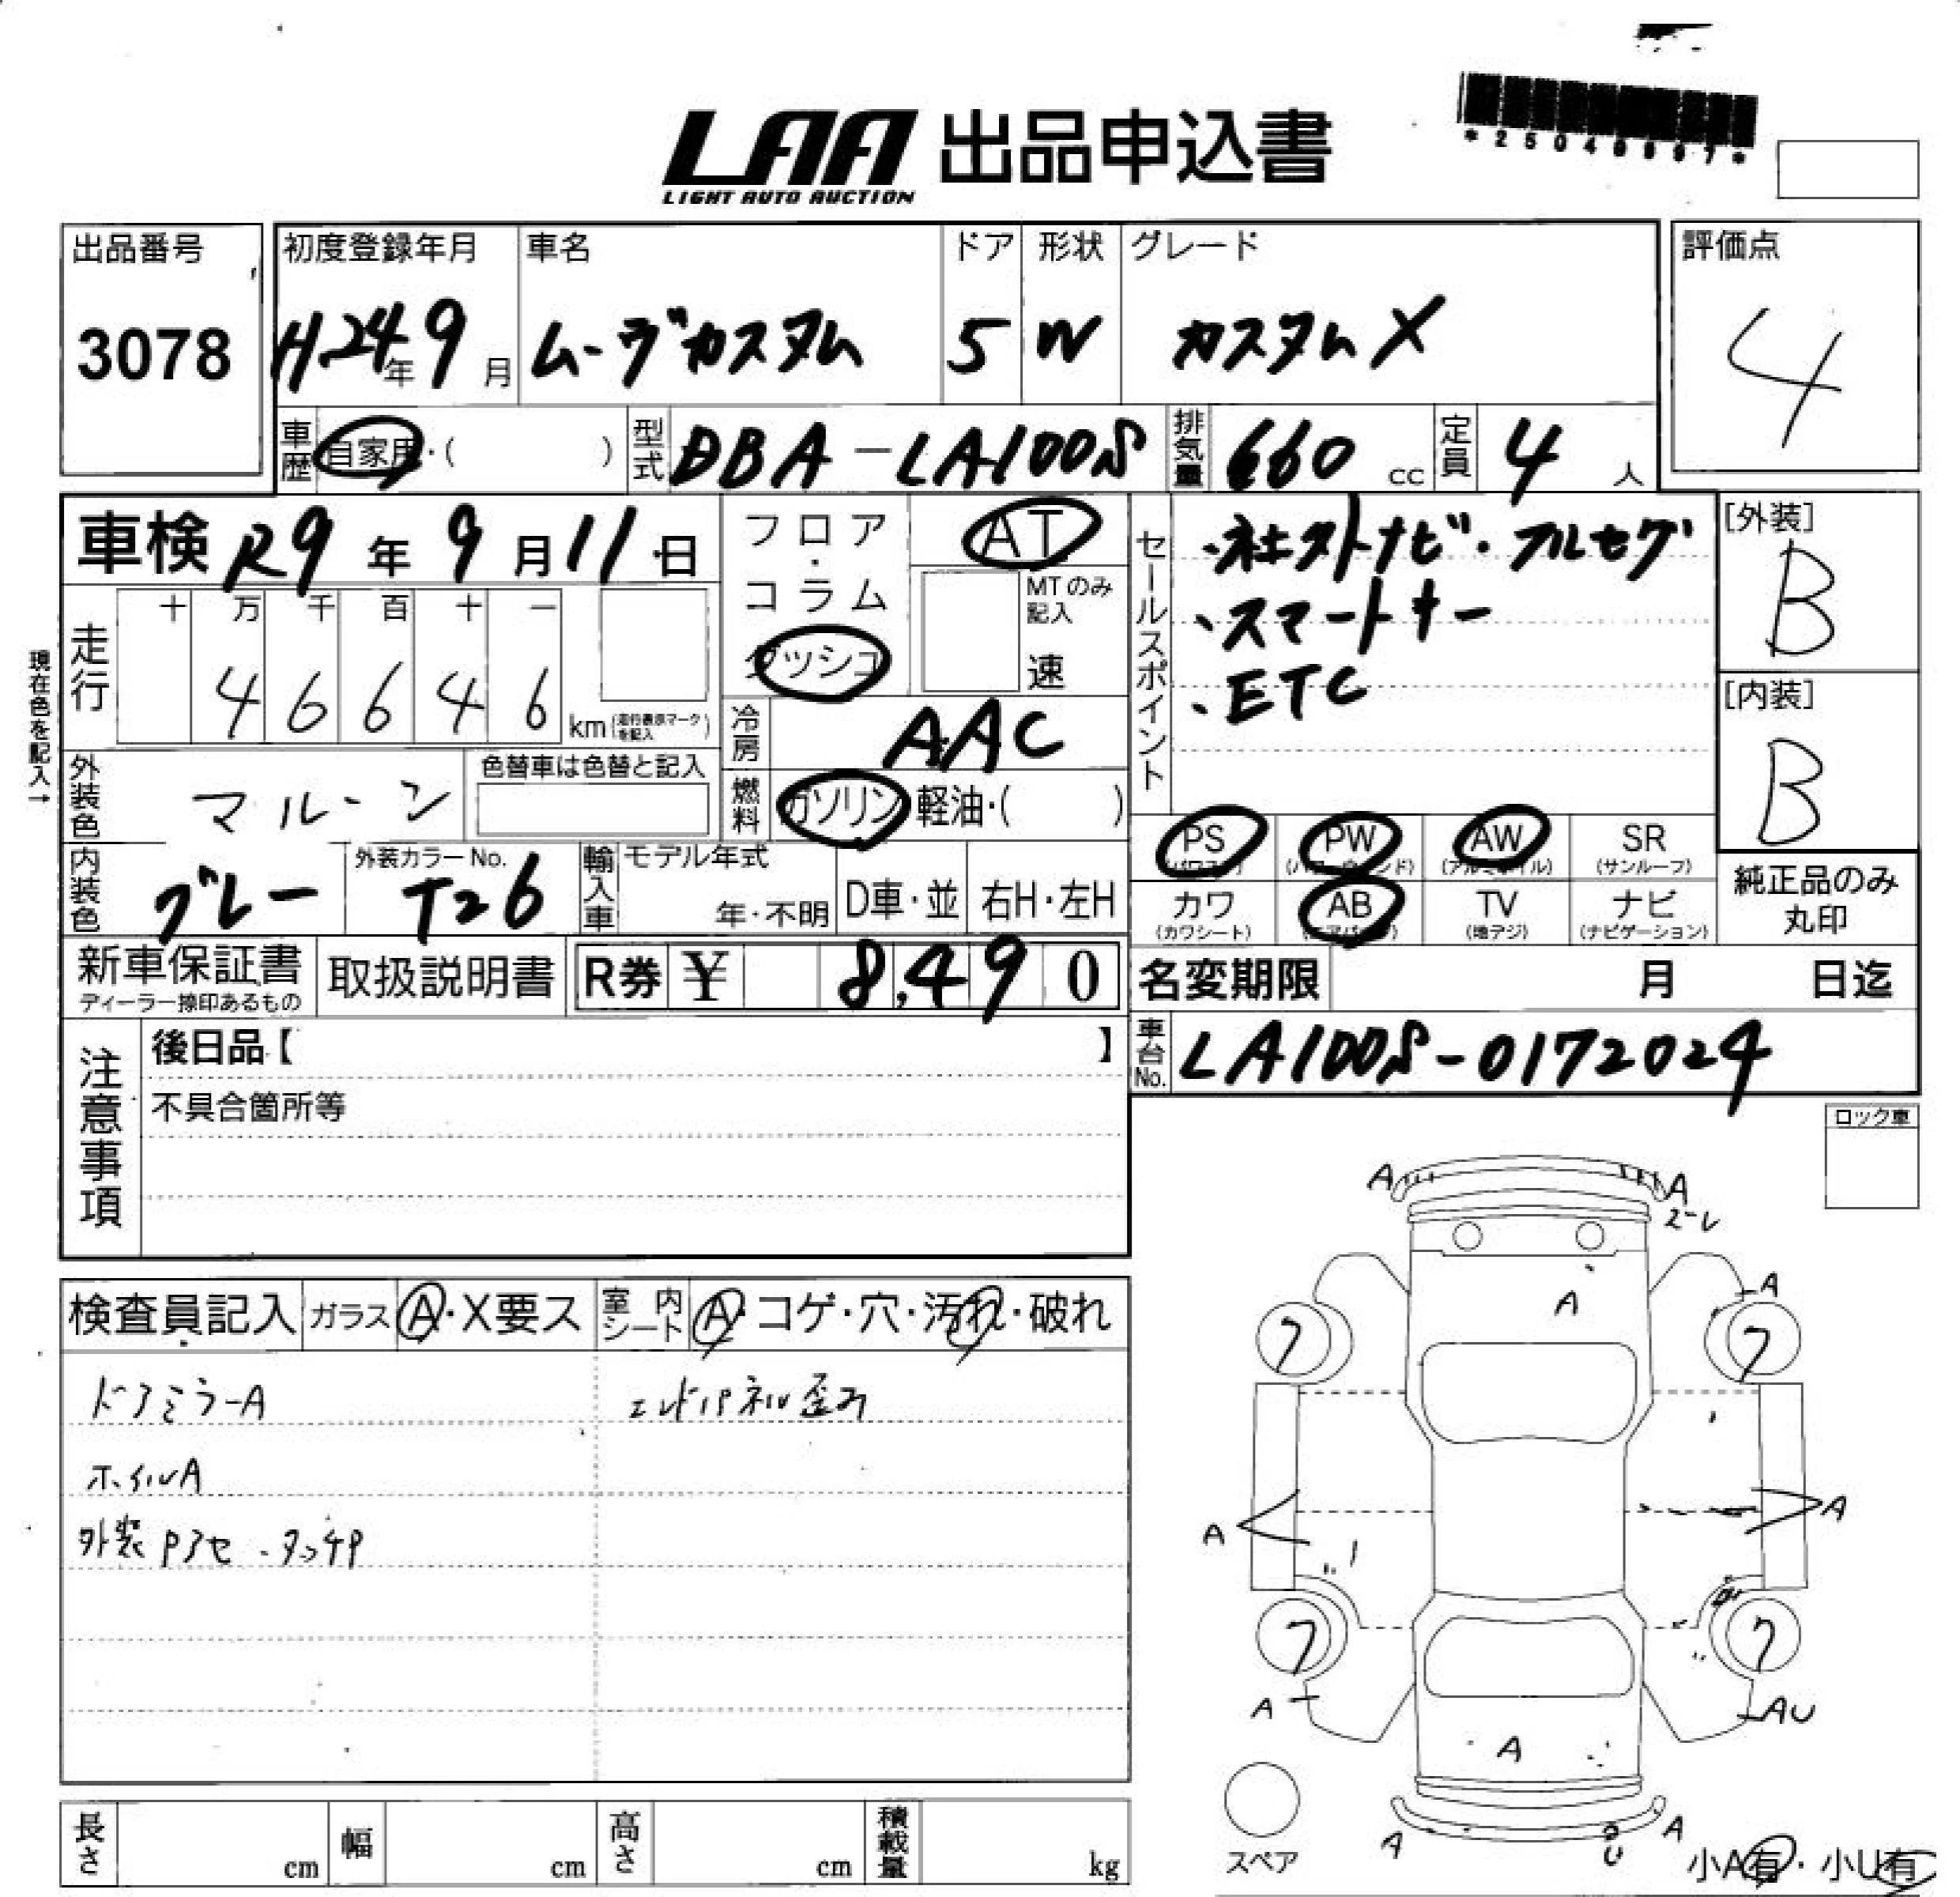 LAA 出品申込書
LIGHT AUTO AUCTION
出品番号
3078
初度登録年月
H24年9月
車名
ムーヴカスタム
ドア
5
形状
W
グレード
カスタムX
評価点
4
車歴 自家用・( )
型式 DBA-LA100S
排気量 660 cc
定員 4 人
車検 R9年9月11日
フロア・コラム
ダッシュ
AT
MTのみ記入
速
現在色を記入→
走行
十 万 千 百 十 一
4 6 6 4 6
km(走行表示マークを記入)
冷房 AAC
外装色 マルーン
色替車は色替と記入
燃料 ガソリン・軽油・( )
内装色 グレー
外装カラーNo.
T26
輸入車
モデル年式
年・不明
D車・並
右H・左H
セールスポイント
・社外ナビ・フルセグ
、スマートキー
、ETC
[外装]
B
[内装]
B
PS PW AW SR
(パワステ) (パワーウィンド) (アルミホイル) (サンルーフ)
カワ AB TV ナビ
(カワシート) (エアバッグ) (地デジ) (ナビゲーション)
純正品のみ
丸印
新車保証書
ディーラー捺印あるもの
取扱説明書
R券 ¥ 8,490
名変期限 月 日迄
車台No. LA100S-0172024
注意事項
後日品【 】
不具合箇所等
ロック車
検査員記入
ガラス A・X要ス
室内シート A・コゲ・穴・汚れ・破れ
ドアミラーA
エンドパネル歪み
ホイルA
外装Pアセ・タッチP
A A
A
A
7 7
A A
7 7
A AU
A
A U A
スペア
小A有・小U有
長さ cm
幅 cm
高さ cm
積載量 kg